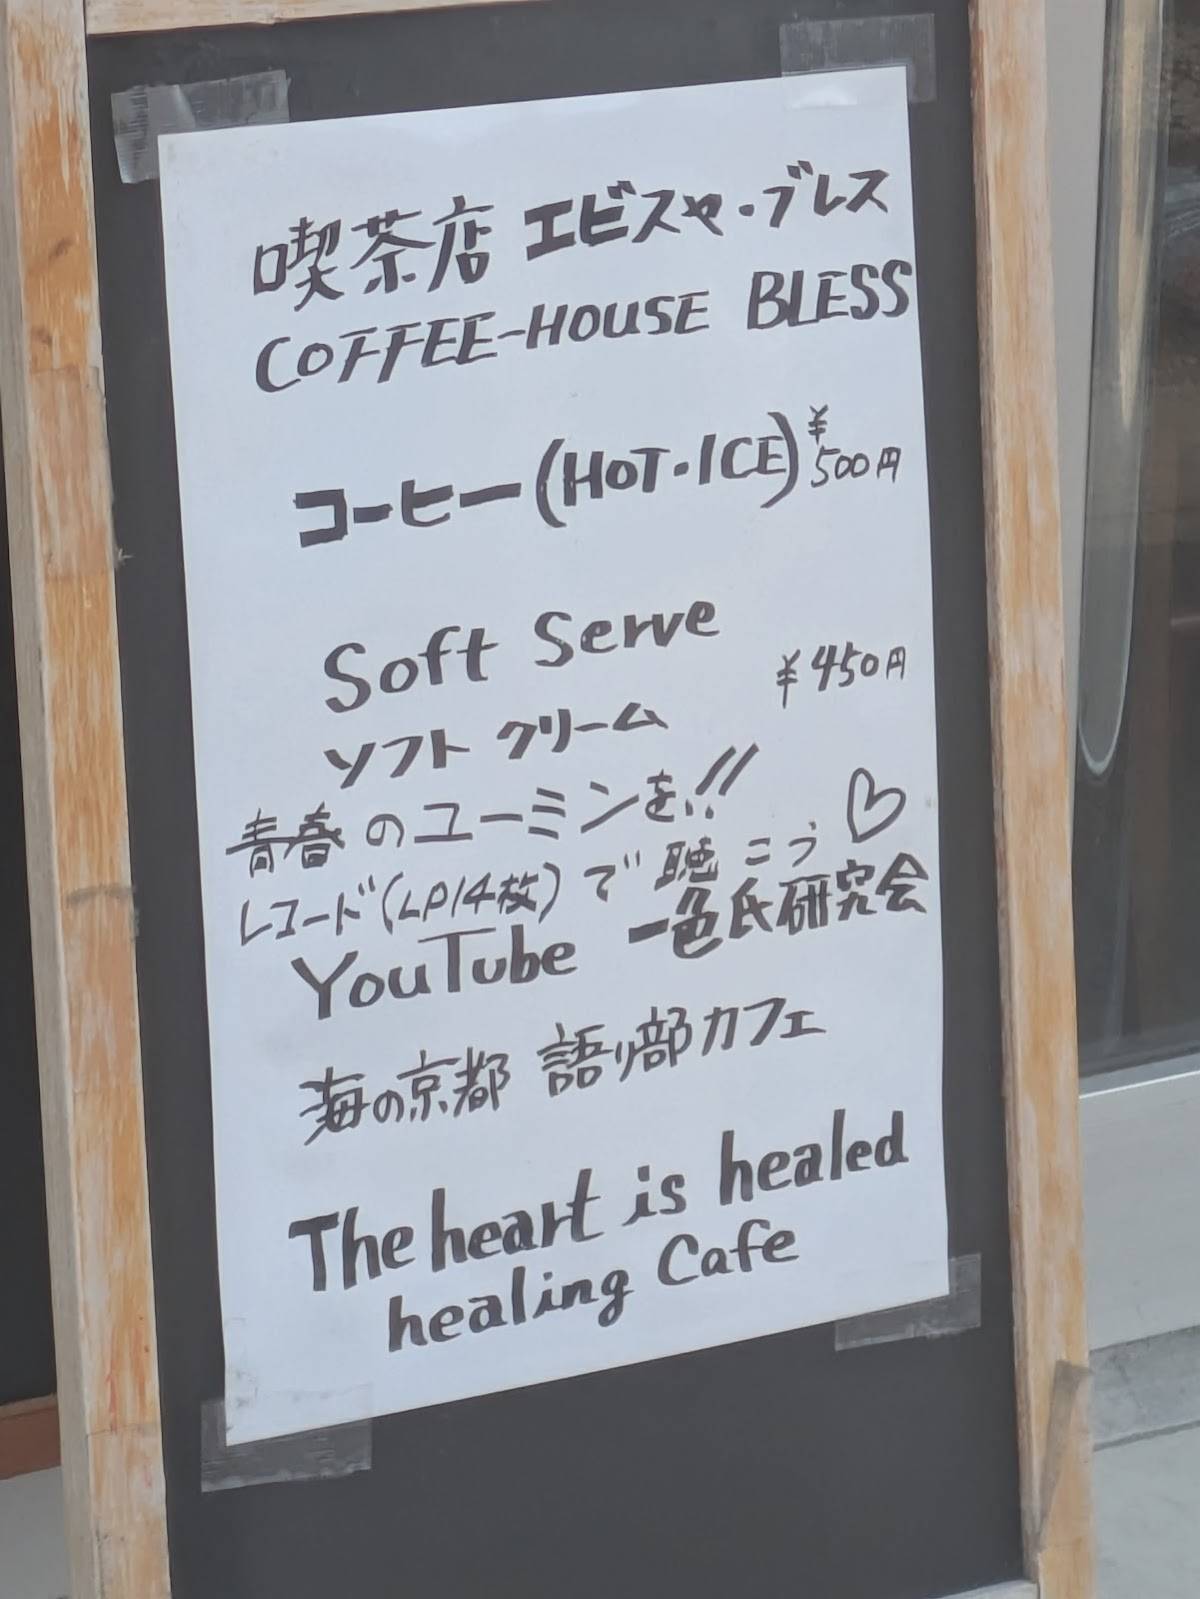 喫茶店 エビスヤ・ブレス
COFFEE-HOUSE BLESS
コーヒー(HOT・ICE)¥500円
Soft Serve
¥450円
ソフトクリーム
青春のユーミンを!!
レコード(LP14枚)で聴こう♡
YouTube 一色氏研究会
海の京都 語り部カフェ
The heart is healed
healing Cafe